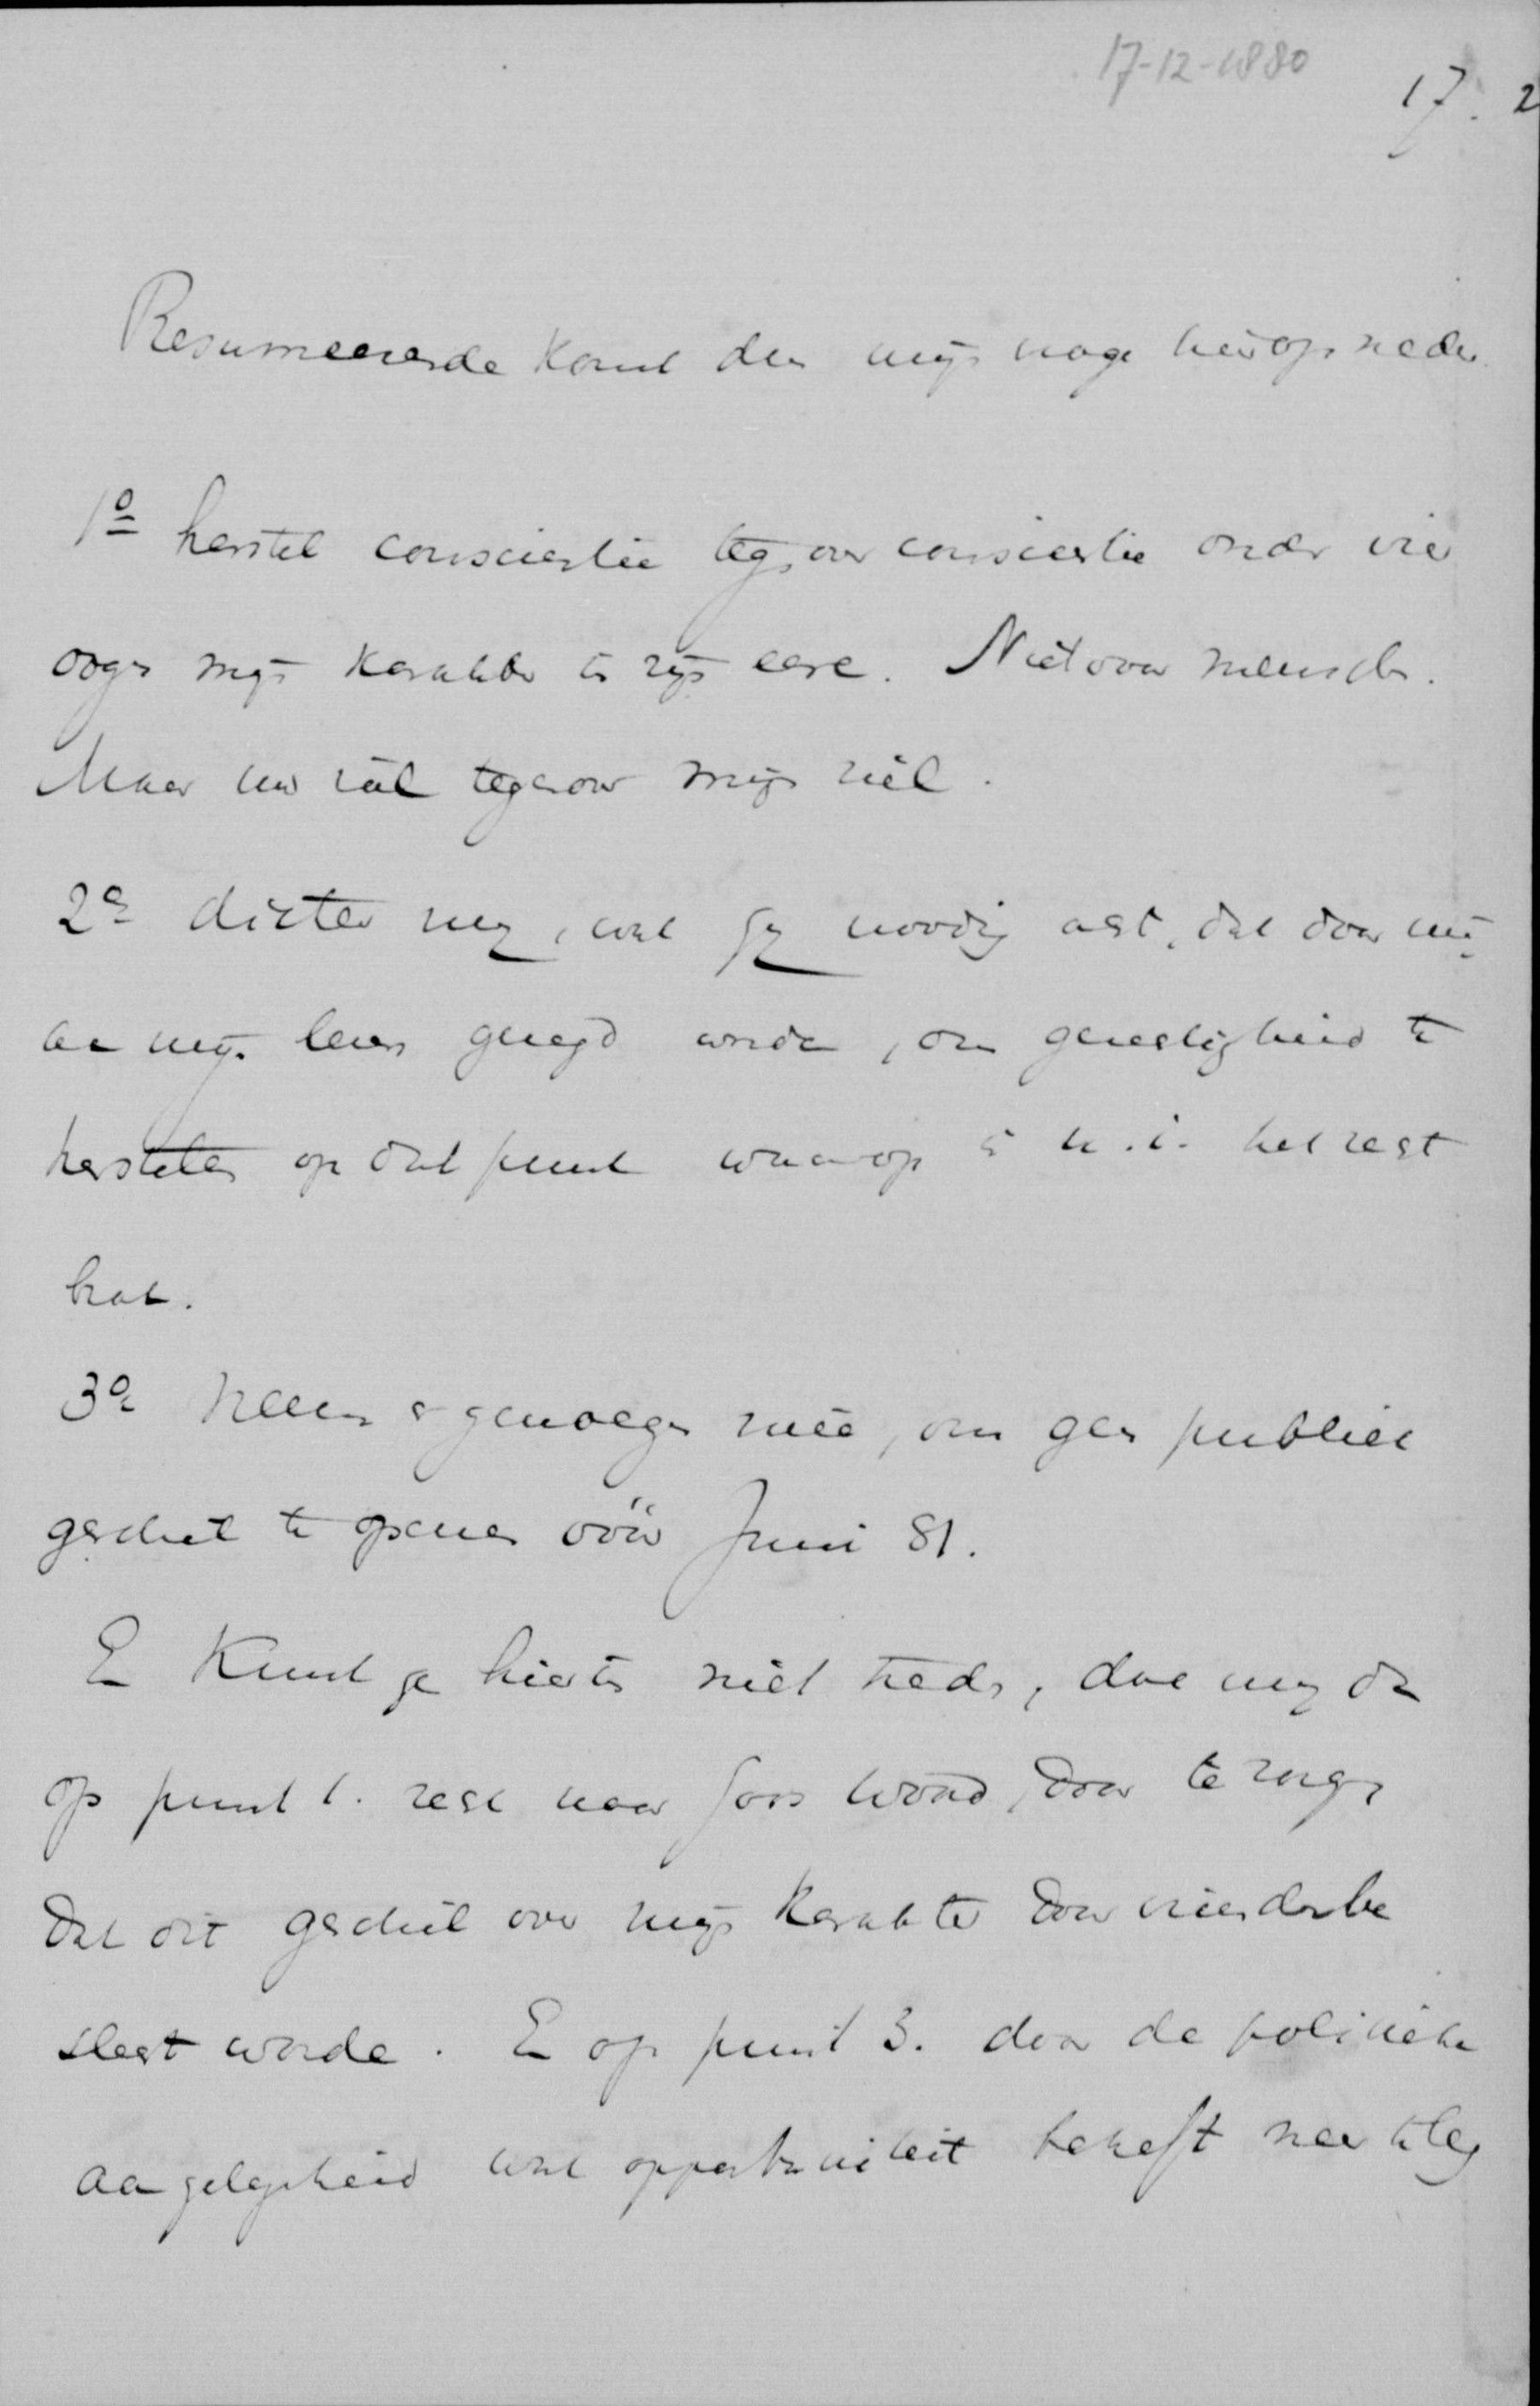 17-12-1880
17. 2
Resumeerende komt dan mijn vrage hierop neder.
1º herstel conscientie tegenover conscientie onder vier
oogen mijn karakter in zijn eere. Niet voor menschen.
Maar uw ziel tegenover mijn ziel.
2º dicteer mij, wat gij noodig acht, dat door mij
aan mijn leven gevoegd worde, om gerechtigheid te
herstellen op dat punt waarop u. i. het recht
had.
3º Neem er genoegen meê, om geen publiek
geschil te openen vóór Juni 81.
En kunt ge hierin niet treden, doe mij dan
op punt 1. recht naar Gods Woord, door te zorgen
dat dit geschil over mijn karakter door vrienden be
slecht worde. En op punt 3. door de politieke
aangelegenheid wat opportuniteit betreft neer te leg